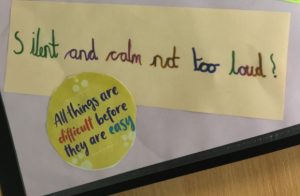 Silent and calm not too loud!
All things are
difficult before
they are easy